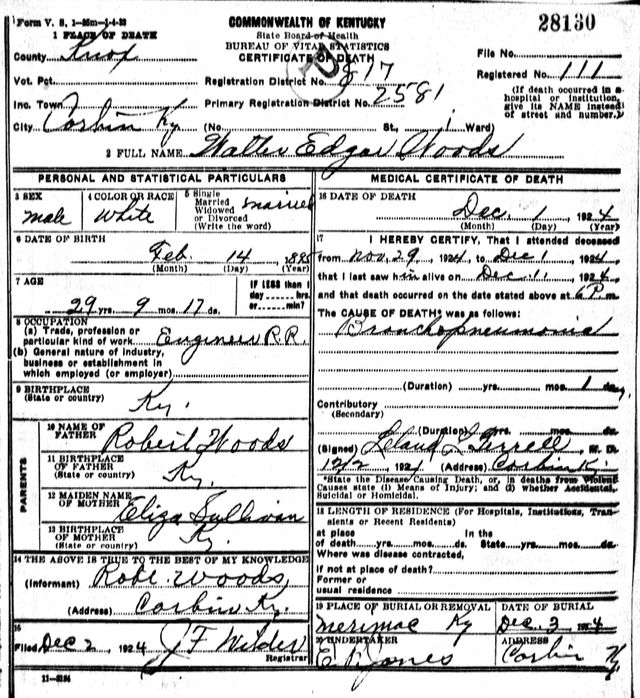 Form V. S. 1—25m—1-4-23
COMMONWEALTH OF KENTUCKY
28130
1 PLACE OF DEATH
State Board of Health
BUREAU OF VITAL STATISTICS
CERTIFICATE OF DEATH
County Knox
File No.
Vot. Pct.
Registration District No. 817
Registered No. 111
Inc. Town
Primary Registration District No. 2581
(If death occurred in a hospital or institution, give its NAME instead of street and number.)
City Corbin Ky (No. St., 1 Ward)
2 FULL NAME Walter Edgar Woods
PERSONAL AND STATISTICAL PARTICULARS
3 SEX
male
4 COLOR OR RACE
White
5 Single
Married
Widowed
or Divorced
(Write the word)
married
6 DATE OF BIRTH
Feb. 14 1895
(Month) (Day) (Year)
7 AGE
29 yrs. 9 mos. 17 ds.
IF LESS than 1
day hrs.
or min.?
8 OCCUPATION
(a) Trade, profession or
particular kind of work Engineer R.R.
(b) General nature of industry,
business or establishment in
which employed (or employer)
9 BIRTHPLACE
(State or country)
Ky.
PARENTS
10 NAME OF
FATHER
Robert Woods
11 BIRTHPLACE
OF FATHER
(State or country)
Ky.
12 MAIDEN NAME
OF MOTHER
Eliza Sullivan
13 BIRTHPLACE
OF MOTHER
(State or country)
Ky.
14 THE ABOVE IS TRUE TO THE BEST OF MY KNOWLEDGE
(Informant) Robt. Woods
(Address) Corbin Ky.
15
Filed Dec 2, 1924 J F Wilder
Registrar
MEDICAL CERTIFICATE OF DEATH
16 DATE OF DEATH
Dec. 1, 1924
(Month) (Day) (Year)
17 I HEREBY CERTIFY, That I attended deceased
from Nov. 29, 1924, to Dec 1, 1924,
that I last saw him alive on Dec. 1, 1924,
and that death occurred on the date stated above at 6 P.m.
The CAUSE OF DEATH* was as follows:
Bronchopneumonia
(Duration) yrs. mos. 1 ds.
Contributory
(Secondary)
(Duration) yrs. mos. ds.
(Signed) M. D.
12/2, 1924 (Address) Corbin Ky.
*State the Disease Causing Death, or, in deaths from Violent
Causes state (1) Means of Injury; and (2) whether Accidental,
Suicidal or Homicidal.
18 LENGTH OF RESIDENCE (For Hospitals, Institutions, Tran-
sients or Recent Residents)
at place In the
of death yrs. mos. ds. State yrs. mos. ds.
Where was disease contracted,
if not at place of death?
Former or
usual residence
19 PLACE OF BURIAL OR REMOVAL
Merimac Ky
DATE OF BURIAL
Dec. 3, 1924
20 UNDERTAKER
Jones
ADDRESS
Corbin Ky.
11—3184